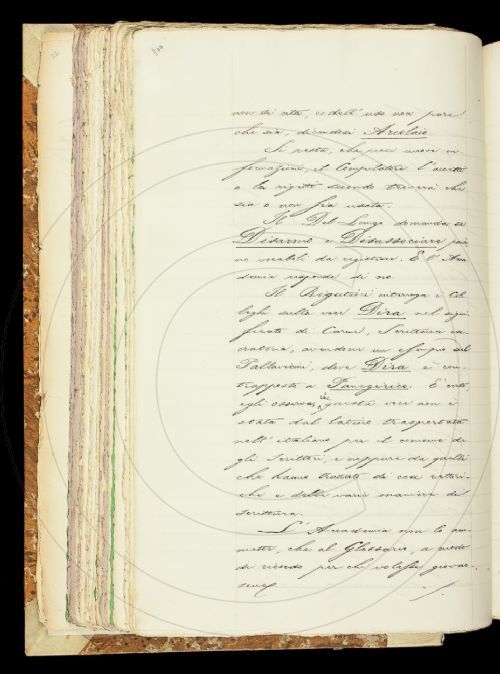 300
non si usa, e dell' uso non pare
che sia, dicendosi Arcolaio.
Si resta, che, prese nuove in
formazioni, il Compilatore l' accetti
o la rigetti secondo troverà che
sia o non sia usata.
Il Del-Lungo domanda se
Disarmo e Disassociare paia
no vocaboli da registrare. E l' Acca
demia risponde di no.
Il Rigutini interroga i Col
leghi sulla voce Dira nel signi
ficato di Carme, Scrittura im
precatoria, avendone un esempio del
Pallavicini, dove Dira è con
trapposto a Panegirico. E poiché
egli osserva che questa voce non è
stata dal latino trasportata
nell' italiano per il comune de
gli Scrittori, e neppure da quelli
che hanno trattato di cose retori
che e delle varie maniere di
scrittura.
L' Accademia non lo am
mette, che al Glossario, a modo
di ricordo per chi volesse giovar
sene.